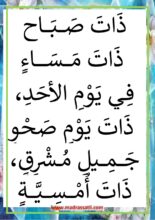 ذَاتَ صَبَاح
ذَاتَ مَسَاءٍ
فِي يَوْمِ الأَحَدِ،
ذَاتَ يَوْمٍ صَحْوٍ
جَمِيلٍ مُشْرِقٍ،
ذَاتَ أُمْسِيَّةٍ
www.madrassatii.com